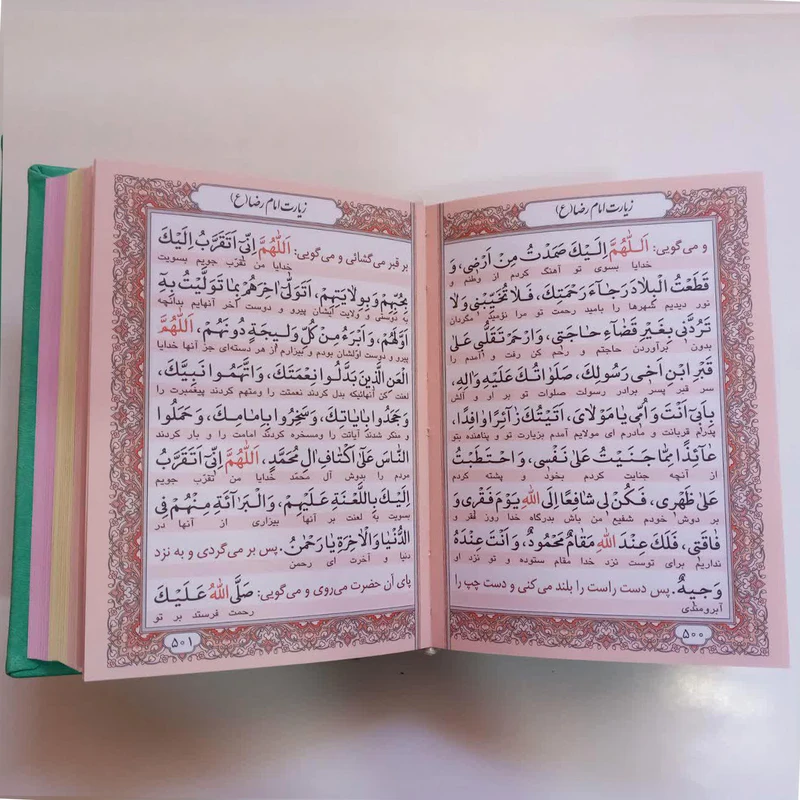 زیارت امام رضا(ع)
و می‌گویی: اَللّٰهُمَّ اِلَيْكَ صَمَدْتُ مِنْ اَرْضى، وَ
خدایا بسوی تو آهنگ کردم از وطنم و
قَطَعْتُ الْبِلادَ رَجاءَ رَحْمَتِكَ، فَلا تُخَيِّبْنى وَلا
نور دیدیم شهرها را بامید رحمت تو مرا نومید مگردان
تَرُدَّنى بِغَيْرِ قَضاءِ حاجَتى، وَارْحَمْ تَقَلُّبى عَلىٰ
بدون برآوردن حاجتم و رحم کن رفت و آمدم را
قَبْرِ ابْنِ اَخى رَسُولِكَ، صَلَواتُكَ عَلَيْهِ وَالِهِ،
سر قبر پسر برادر رسولت صلوات تو بر او و آلش
بِاَبى اَنْتَ وَاُمّى يا مَوْلاىَ، اَتَيْتُكَ زائِرًا وافِدًا،
پدرم قربانت و مادرم ای مولایم آمدم بزیارت تو و پناهنده بتو
عائِذًا مِمّا جَنَيْتُ عَلىٰ نَفْسى، وَاحْتَطَبْتُ
از آنچه جنایت کردم بخود و پشته کردم
عَلىٰ ظَهْرى، فَكُنْ لى شافِعًا اِلَى اللهِ يَوْمَ فَقْرى وَ
بر دوش خودم شفیع من باش بدرگاه خدا روز فقر و
فاقَتى، فَلَكَ عِنْدَ اللهِ مَقامٌ مَحْمُودٌ، وَاَنْتَ عِنْدَهُ
نداریم برای توست نزد خدا مقام ستوده و تو نزد او
وَجيهٌ. پس دست راست را بلند می کنی و دست چپ را
آبرومندی
۵۰۰
زیارت امام رضا(ع)
بر قبر می گشائی و می گویی: اَللّٰهُمَّ اِنّى اَتَقَرَّبُ اِلَيْكَ
خدایا من تقرّب جویم بسویت
بِحُبِّهِمْ وَبِوِلايَتِهِمْ، اَتَوَلّىٰ اخِرَهُمْ بِما تَوَلَّيْتُ بِهِ
به دوستی و ولایت ایشان پیرو و دوست آخر آنهایم بدانچه
اَوَّلَهُمْ، وَاَبْرَءُ مِنْ كُلِّ وَليجَةٍ دُونَهُمْ، اَللّٰهُمَّ
پیرو و دوست اولشان بودم و بیزارم از هر دسته‌ای جز آنها خدایا
الْعَنِ الَّذينَ بَدَّلُوا نِعْمَتَكَ، وَاتَّهَمُوا نَبِيَّكَ،
لعنت کن آنهائیکه بدل کردند نعمتت را ومتهم کردند پیغمبرت را
وَجَحَدُوا بِاياتِكَ، وَسَخِرُوا بِاِمامِكَ، وَحَمَلُوا
و منکر شدند آیاتت را ومسخره کردند امامت را و بار کردند
النّاسَ عَلىٰ اَكْتافِ الِ مُحَمَّدٍ، اَللّٰهُمَّ اِنّى اَتَقَرَّبُ
مردم را بدوش آل محمد خدایا من تقرّب جویم
اِلَيْكَ بِاللَّعْنَةِ عَلَيْهِمْ، وَالْبَرائَةِ مِنْهُمْ فِى
بسویت به لعنت بر آنها بیزاری از آنها در
الدُّنْيا وَالْاخِرَةِ يا رَحْمٰنُ. پس بر می گردی و به نزد
دنیا و آخرت ای رحمن
پای آن حضرت می‌روی و می‌گویی: صَلَّى اللهُ عَلَيْكَ
رحمت فرستد بر تو
۵۰۱